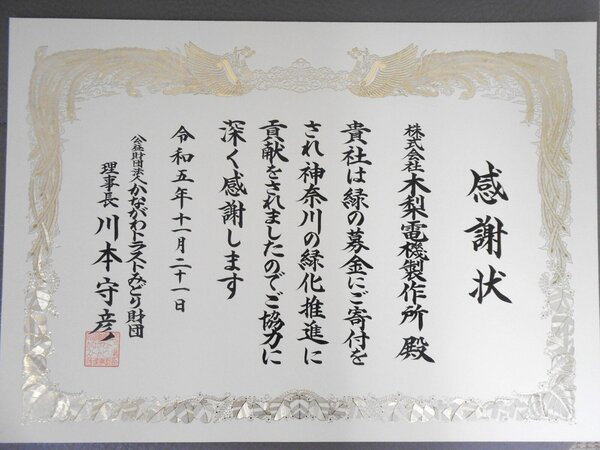 感謝状
株式会社木梨電機製作所殿
貴社は緑の募金にご寄付を
され神奈川の緑化推進に
貢献をされましたのでご協力に
深く感謝します
令和五年十一月二十一日
公益財団法人かながわトラストみどり財団
理事長川本守彦